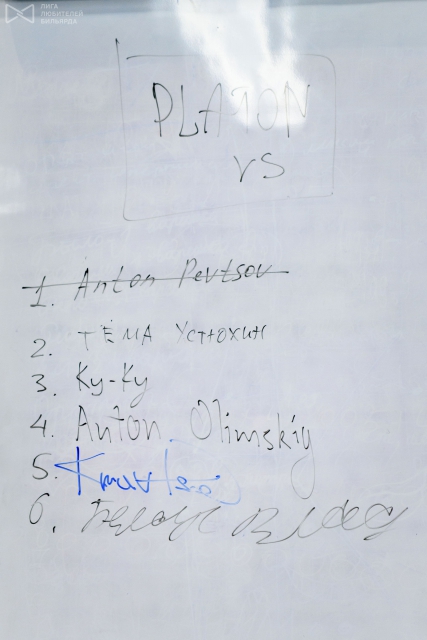 ЛИГА
ЛЮБИТЕЛЕЙ
БИЛЬЯРДА
PLATON
VS
1. Anton Pevtsov
2. ТЁМА УСТЮХИН
3. Ку-Ку
4. Anton Olimskiy
5.
6.